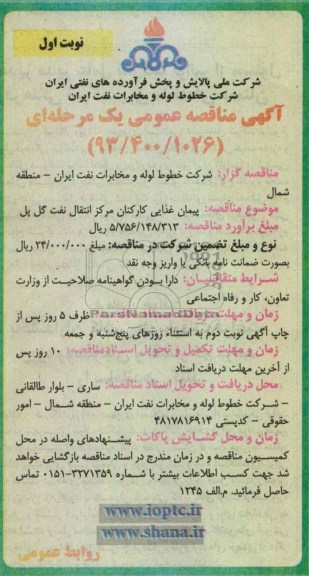 نوبت اول
شرکت ملی پالایش و پخش فرآورده های نفتی ایران
شرکت خطوط لوله و مخابرات نفت ایران
آگهی مناقصه عمومی یک مرحله‌ای
(۹۳/۴۰۰/۱۰۲۶)
مناقصه گزار: شرکت خطوط لوله و مخابرات نفت ایران - منطقه
شمال
موضوع مناقصه: پیمان غذایی کارکنان مرکز انتقال نفت گل پل
مبلغ برآورد مناقصه: ۵/۷۵۶/۱۴۸/۳۱۳ ریال
نوع و مبلغ تضمین شرکت در مناقصه: مبلغ ۲۴/۰۰۰/۰۰۰ ریال
بصورت ضمانت نامه بانکی یا واریز وجه نقد
شرایط متقاضیان: دارا بودن گواهینامه صلاحیت از وزارت
تعاون، کار و رفاه اجتماعی
زمان و مهلت ظرف ۵ روز پس از
چاپ آگهی نوبت دوم به استثناء روزهای پنج‌شنبه و جمعه
زمان و مهلت تکمیل و تحویل اسناد مناقصه: ۱۰ روز پس
از آخرین مهلت دریافت اسناد
محل دریافت و تحویل اسناد مناقصه: ساری - بلوار طالقانی
- شرکت خطوط لوله و مخابرات نفت ایران - منطقه شمال - امور
حقوقی - کدپستی ۴۸۱۷۸۱۶۹۱۴
زمان و محل گشایش پاکات: پیشنهادهای واصله در محل
کمیسیون مناقصه و در زمان مندرج در اسناد مناقصه بازگشایی خواهد
شد جهت کسب اطلاعات بیشتر با شماره ۳۲۷۱۳۵۹-۰۱۵۱ تماس
حاصل فرمائید. م.الف ۱۲۴۵
www.ioptc.ir
www.shana.ir
روابط عمومی
ParsNamadData